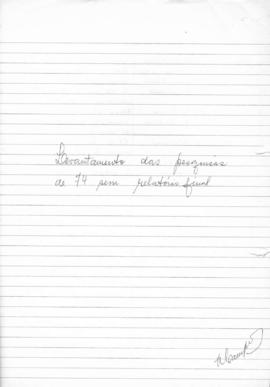 Levantamento das pesquisas
de 74 sem relatório final